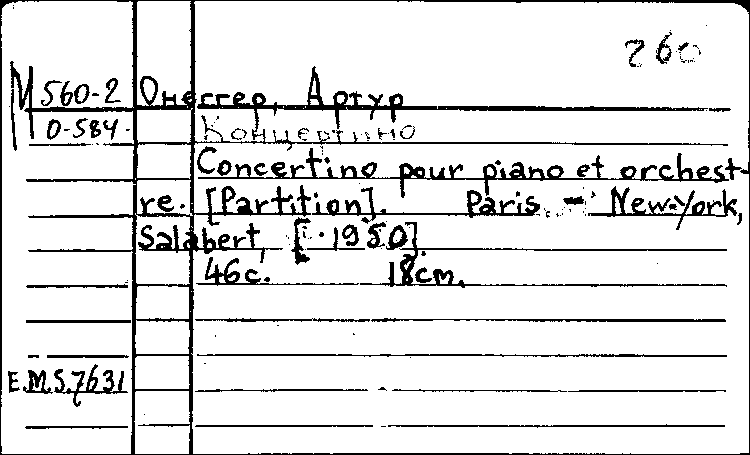 260
М 560-2 Онеггер, Артур
О-584.
Концертино
Concertino pour piano et orchest-
re. [Partition]. Paris - New-York,
Salabert, [1950].
46с. 18cm.
E.M.S.7631